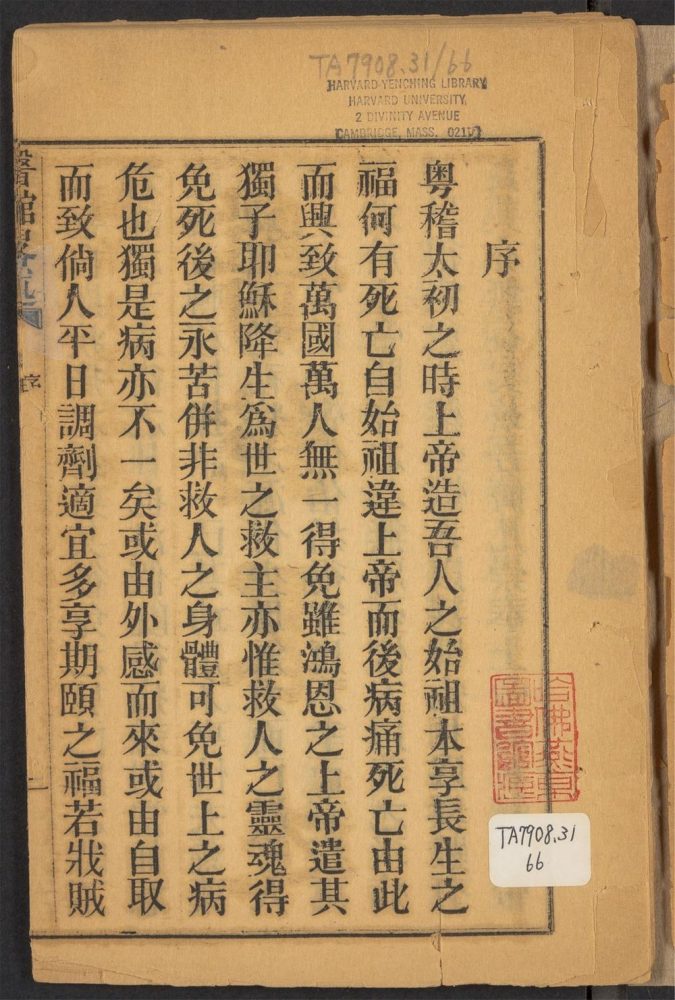 TA7908.31/66
HARVARD-YENCHING LIBRARY
HARVARD UNIVERSITY
2 DIVINITY AVENUE
CAMBRIDGE, MASS. 02138
序
粤稽太初之時上帝造吾人之始祖本享長生之
福何有死亡自始祖違上帝而後病痛死亡由此
而興致萬國萬人無一得免雖鴻恩之上帝遣其
獨子耶穌降生爲世之救主亦惟救人之靈魂得
免死後之永苦併非救人之身體可免世上之病
危也獨是病亦不一矣或由外感而來或由自取
而致倘人平日調劑適宜多享期頤之福若戕賊
序
一
哈佛燕京
圖書館藏
TA7908.31
66